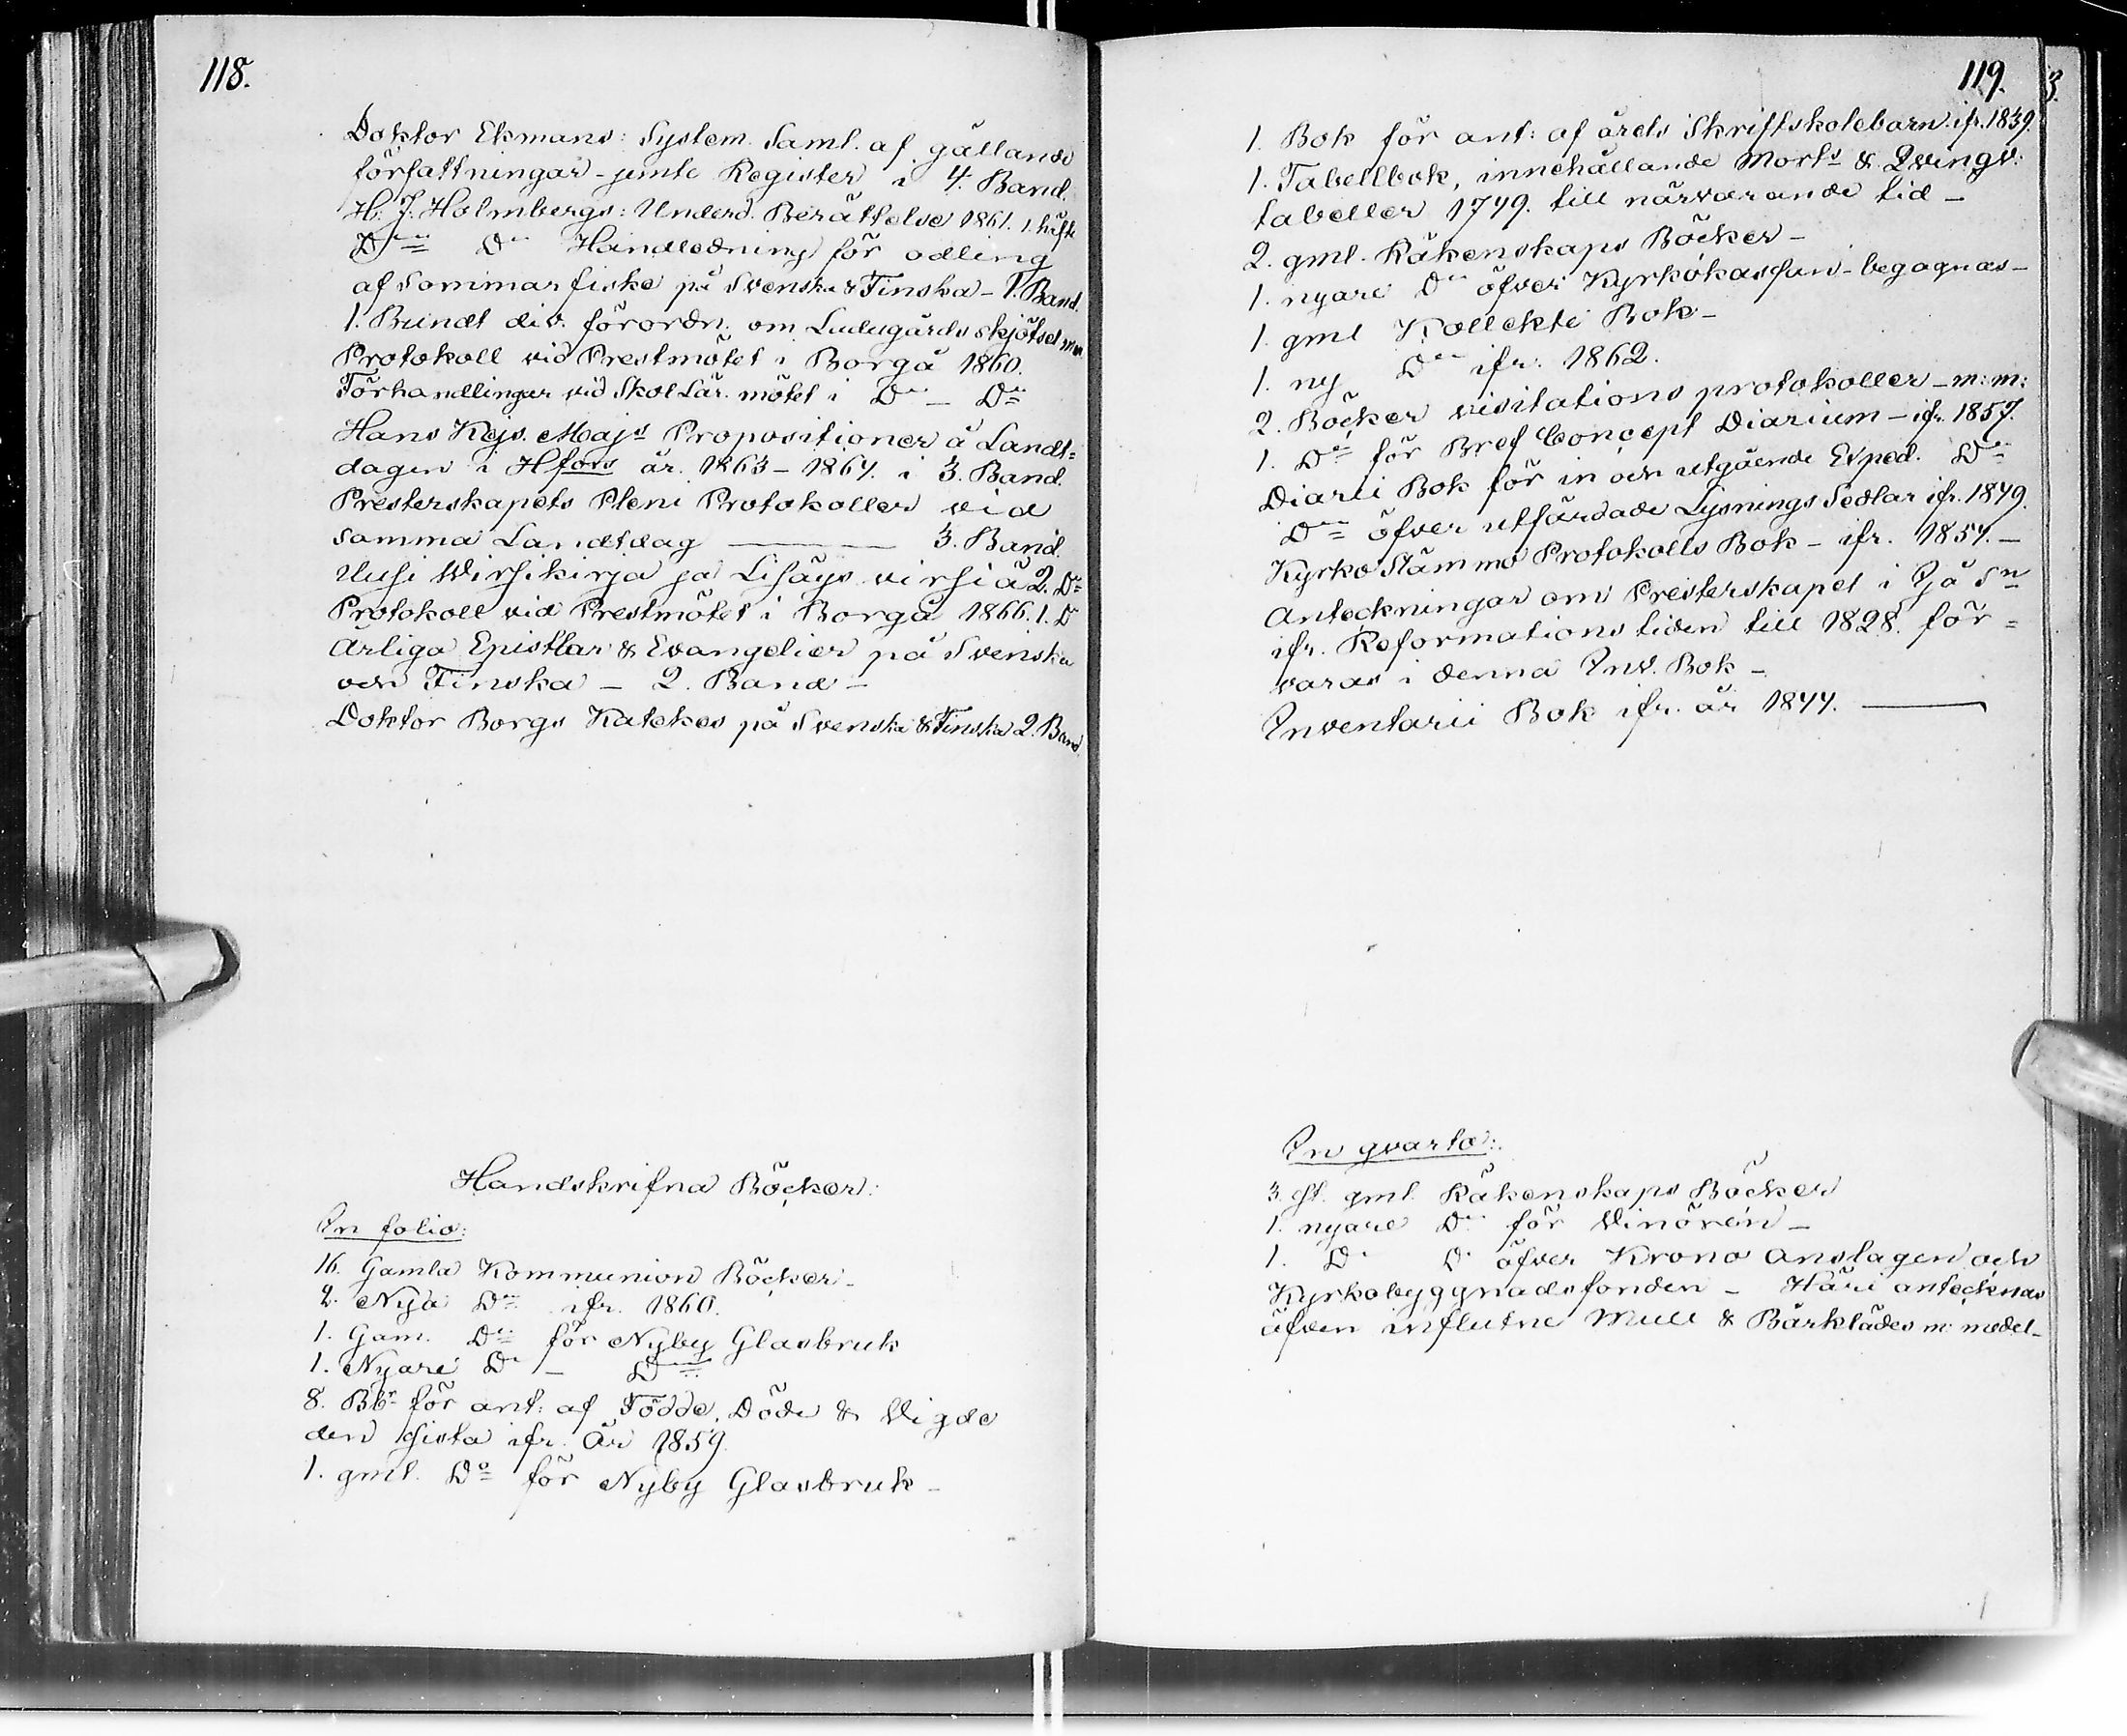 118.
Doktor Ekmans: System. Saml. af gällande
författningar - jemte Register i 4. Band.
H. J. Holmbergs: Underd. Berättelse 1861. 1. häfte
Do Do Handledning för odling
af Sommarfiske på Svenska & Finska - 1. Band.
1. Bundt div. förordn. om Ladugårds skjötsel mm.
Protokoll vid Prestmötet i Borgå 1860.
Förhandlingar vid Skol Lär. mötet i Do - Do
Hans Kejs. Majs Propositioner å Landt=
dagen i Hfors år. 1863-1864. i 3. Band.
Presterskapets Pleni Protokoller vid
samma Landtdag ——— 3. Band.
Uusi Wirsikirja ja Lisäys virsiä 2. Do
Protokoll vid Prestmötet i Borgå 1866. 1. D
Årliga Epistlar & Evangelier på Svenska
och Finska - 2. Band -
Doktor Borgs Katekes på Svenska & Finska 2. Band.
Handskrifna Böcker:
In folio:
16. Gamla Kommunion Böcker -
2. Nya Do ifr. 1860.
1. Gam. Do för Nyby Glasbruk
1. Nyare Do - Do
8. Bbr för ant: af Födde, Döde & Vigde
den sista ifr. År 1859.
1. gml. Do för Nyby Glasbruk -
119.
3.
1. Bok för ant: af årets Skriftskolebarn. ifr. 1839.
1. Tabellbok, innehållande Morts & Qvingv:
tabeller 1749. till närvarande tid -
2. gml. Räkenskaps Böcker -
1. nyare Do öfver Kyrkokassan - begagnas -
1. gml Kollekte Bok -
1. ny Do ifr. 1862.
2. Böcker visitations protokoller - m: m:
1. Do för Bref Concept Diarium - ifr. 1857.
Diarii Bok för in och utgående Exped. Do
Do öfver utfärdade Lysnings Sedlar ifr. 1849.
Kyrko Stämmo Protokolls Bok - ifr. 1854. -
Anteckningar om Presterskapet i Sn
ifr. Reformations tiden till 1828. för=
varas i denna Inv. Bok -
Inventarii Bok ifr. år 1844. ———
In qvarto:
3. st. gml. Räkenskaps Böcker
1. nyare Do för Vinören -
1. Do Do öfver Krono Anslagen och
Kyrkobyggnadsfonden - Häri antecknas
äfven influtne Mull & Bårklädes m: medel -